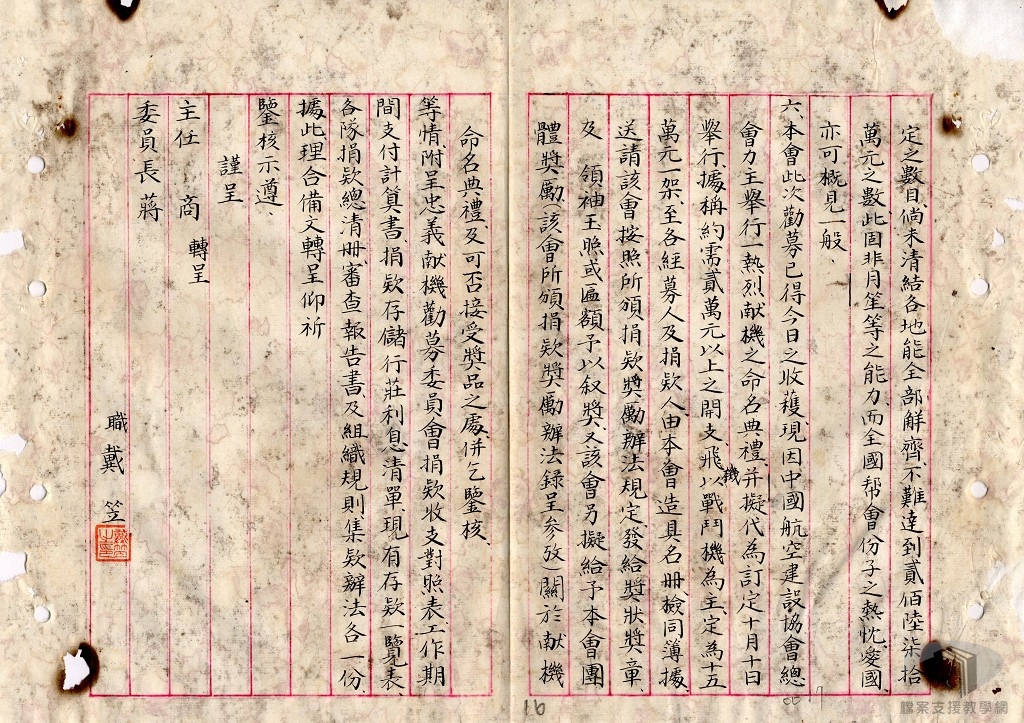 定之數目、倘未清結各地能全部解齊、不難達到貳佰陸柒拾
萬元之數、此固非月笙等之能力、而全國帮會份子之熱忱愛國、
亦可概見一般、
六、本會此次勸募已得今日之收穫、現因中國航空建設協會總
會力主舉行一熱烈献機之命名典禮、并擬代為訂定十月十日
舉行、據稱約需貳萬元以上之開支、飛機以戰鬥機為主、定為十五
萬元一架、至各經募人及捐欵人、由本會造具名册、檢同簿據、
送請該會按照所頒捐欵獎勵辦法規定、發給獎狀獎章、
及 領袖玉照或匾額予以叙獎、又該會另擬給予本會團
體獎勵、(該會所頒捐欵獎勵辦法錄呈參攷)關於献機
命名典禮、及可否接受獎品之處、併乞鑒核、
等情、附呈忠義献機勸募委員會捐欵收支對照表、工作期
間支付計算書、捐欵存儲行莊利息清單、現有存欵一覽表
各隊捐欵總清册、審查報告書、及組織規則集欵辦法各一份、
據此理合備文轉呈仰祈
鑒核示遵、
謹呈
主任 商 轉呈
委員長 蔣
職戴 笠
16
17
檔案支援教學網